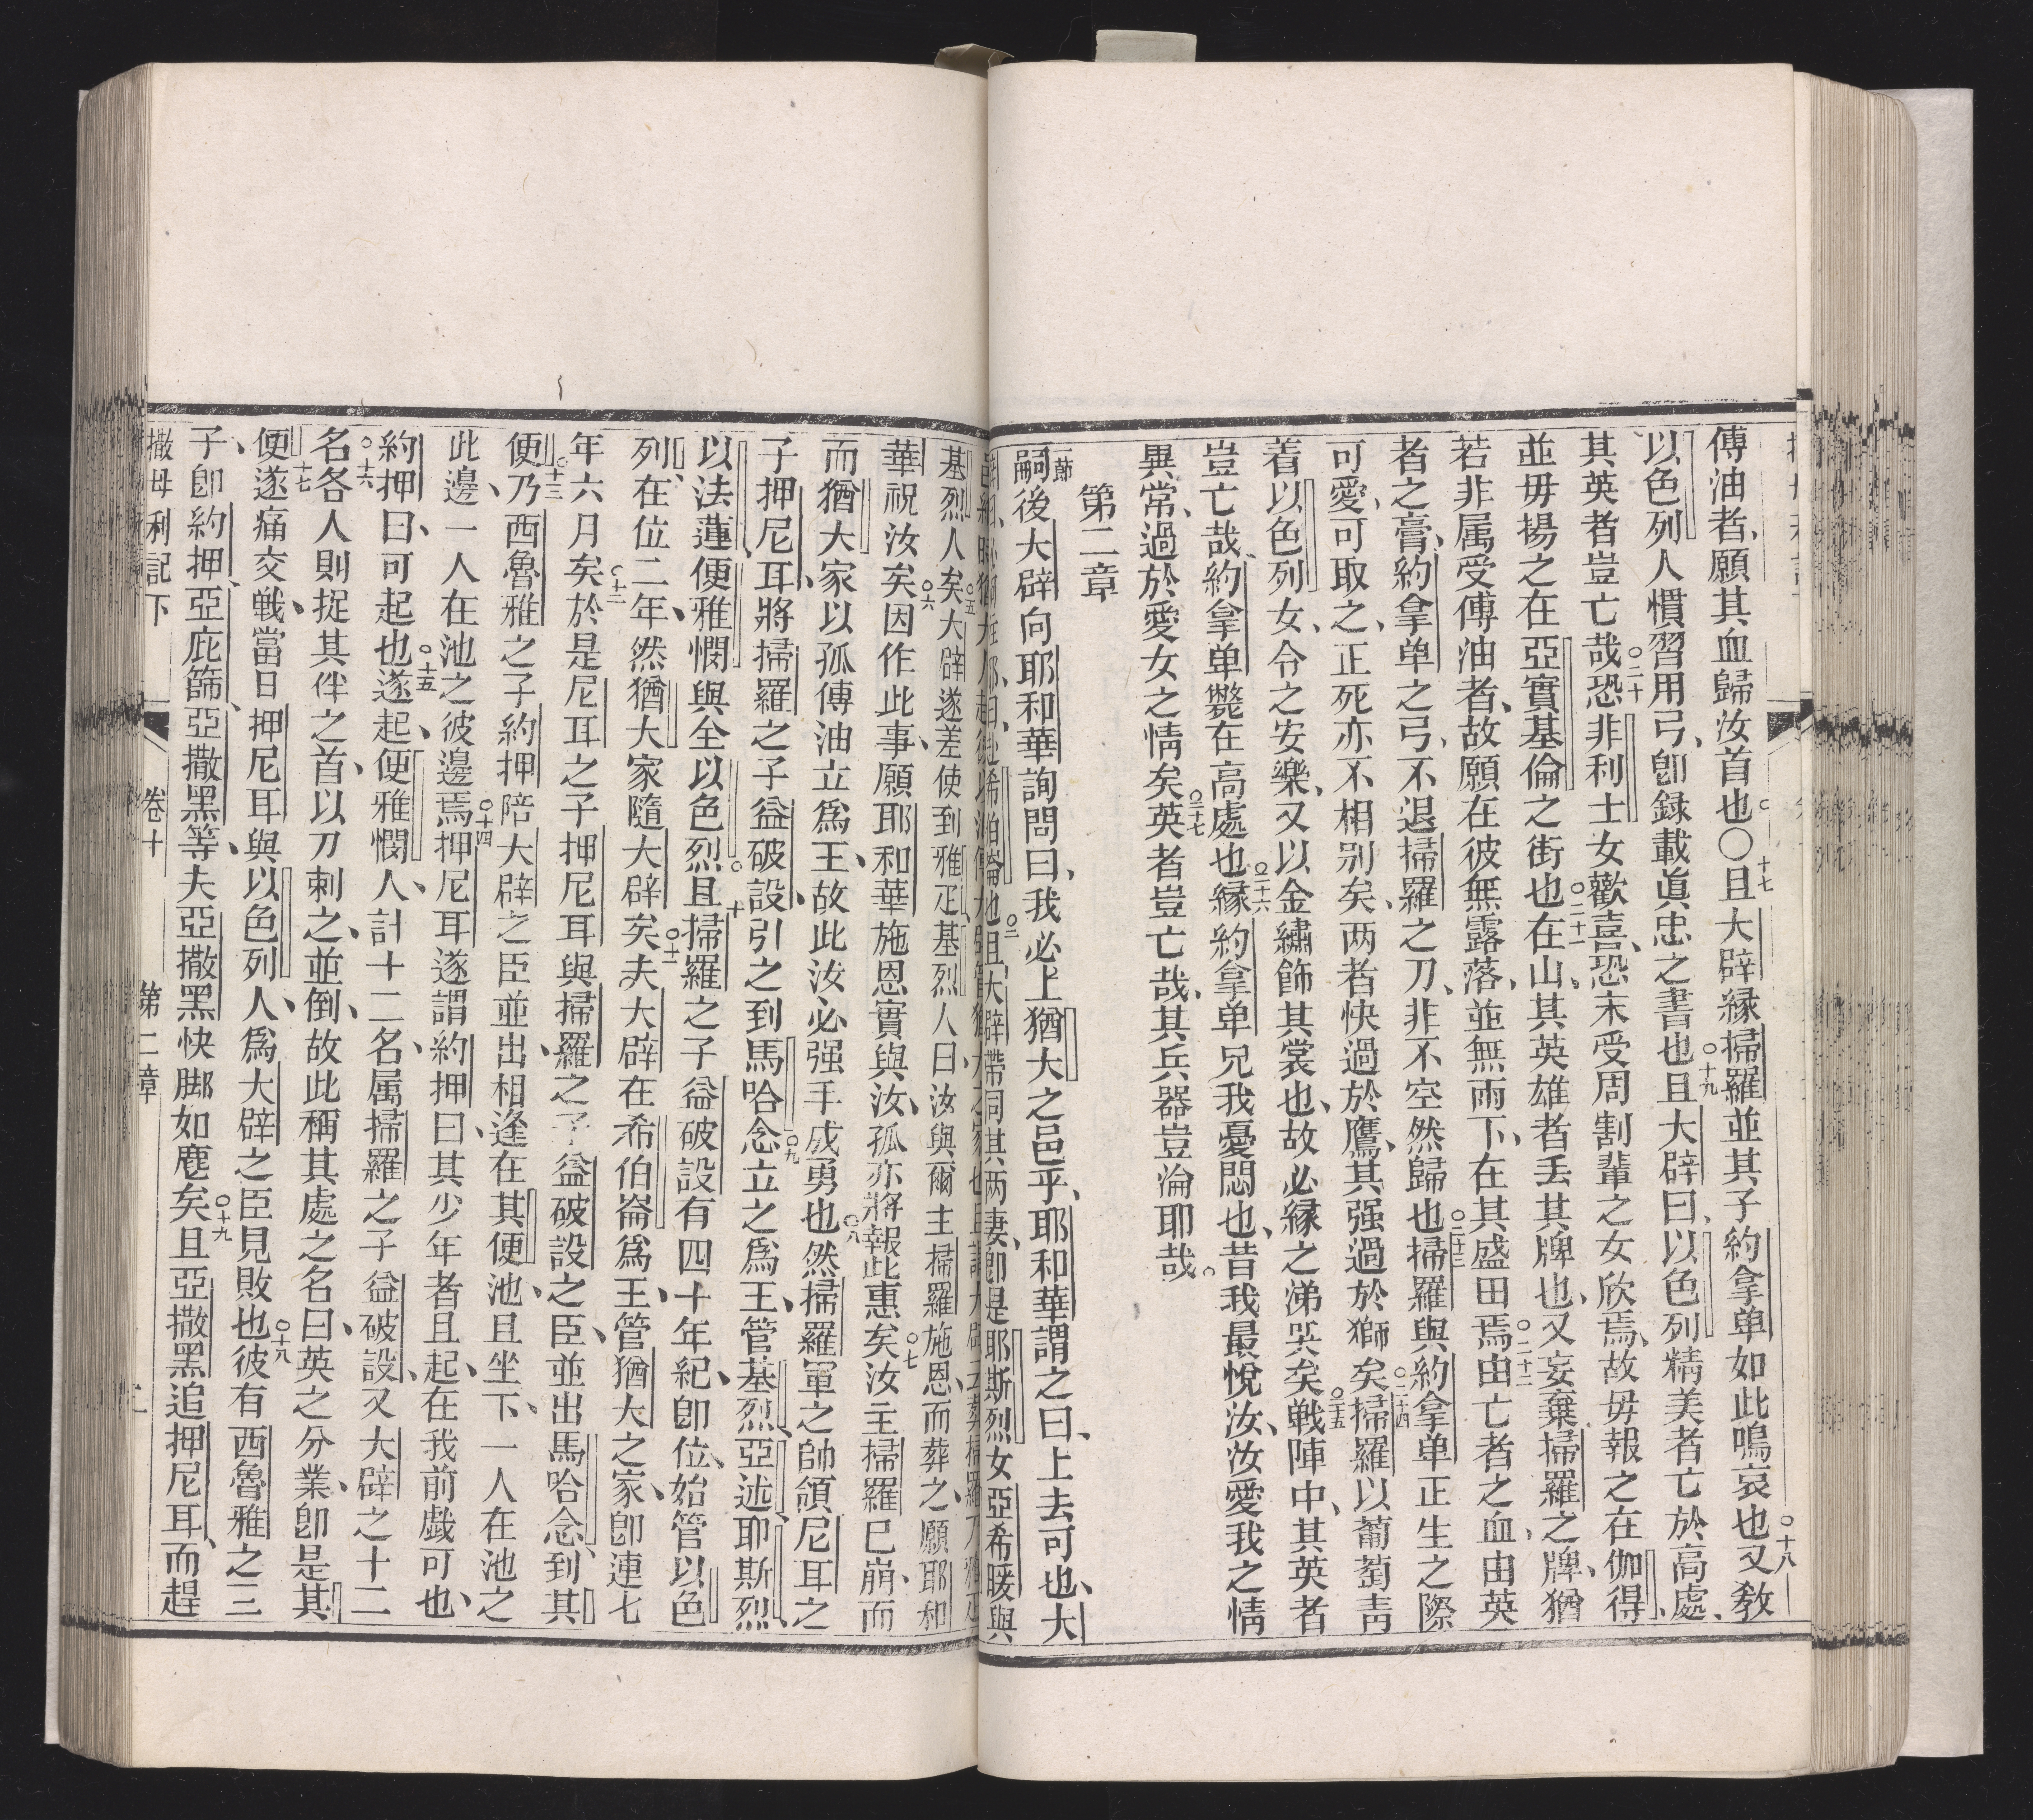 傅油者、願其血歸汝首也。〇十七且大辟縁掃羅並其子約拿单如此鳴哀也〇十八又敎
以色列人慣習用弓、卽録載眞忠之書也〇十九且大辟曰、以色列精美者亡於高處、
其英者豈亡哉〇二十恐非利士女歡喜、恐未受周割輩之女欣焉、故毋報之在伽得、
並毋揚之在亞實基倫之街也〇二十一在山、其英雄者丢其牌也、又妄棄掃羅之牌、猶
若非属受傅油者、故願在彼無露落、並無雨下、在其盛田焉〇二十二由亡者之血、由英
者之膏、約拿单之弓、不退掃羅之刀、非不空然歸也〇二十三掃羅與約拿单正生之際
可愛、可取之、正死亦不相别矣、两者快過於鷹、其强過於獅矣〇二十四掃羅以葡萄靑
着以色列女、令之安樂、又以金繡飾其裳也、故必縁之涕哭矣〇二十五戦陣中、其英者
豈亡哉、約拿单斃在高處也〇二十六縁約拿单兄我憂悶也、昔我最悅汝、汝愛我之情
異常、過於愛女之情矣〇二十七英者豈亡哉、其兵器豈淪耶哉。
第二章
一節嗣後大辟向耶和華詢問曰、我必上猶大之邑乎、耶和華謂之曰、上去可也、大
希伯崙也〇二且大辟帶同其两妻、卽是耶斯烈女亞希暖與
基烈人矣〇五大辟遂差使到雅疋基烈人曰、汝與爾主掃羅施恩、而葬之、願耶和
華祝汝矣〇六因作此事、願耶和華施恩實與汝、孤亦將報此惠矣〇七汝主掃羅已崩、而
而猶大家以孤傅油立爲王、故此汝必强手成勇也〇八然掃羅軍之帥領、尼耳之
子押尼耳將掃羅之子益破設、引之到馬哈念〇九立之爲王、管基烈、亞述、耶斯烈、
以法蓮、便雅憫、與全以色烈。〇十且掃羅之子益破設有四十年紀、卽位、始管以色
列、在位二年、然猶大家隨大辟矣〇十一夫大辟在希伯崙爲王、管猶大之家、卽連七
年六月矣〇十二於是尼耳之子押尼耳與掃羅之子益破設之臣、並出馬哈念、到其
便〇十三乃西魯雅之子約押陪大辟之臣並出、相逢在其便池、且坐下、一人在池之
此邊、一人在池之彼邊焉〇十四押尼耳遂謂約押曰、其少年者且起、在我前戯可也、
約押曰、可起也〇十五遂起、便雅憫人、計十二名、属掃羅之子益破設、又大辟之十二
名〇十六各人則捉其伴之首、以刀刺之、並倒、故此稱其處之名曰、英之分業、卽是其
便〇十七遂痛交戦、當日押尼耳與以色列人、爲大辟之臣見敗也〇十八彼有西魯雅之三
子、卽約押、亞庇篩、亞撒黑等、夫亞撒黑快脚如麀矣〇十九且亞撒黑追押尼耳、而趕
撒母利記下
卷十
第二章
二